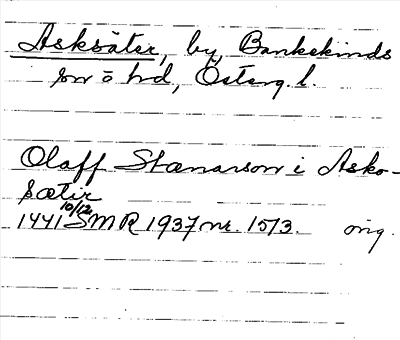 Asksäter, by, Bankekinds
sn o hd, Österg. l.
Olaff Stænarson i Asko-
sætir
1441 10/12 SMR 1937 nr. 1513. orig.